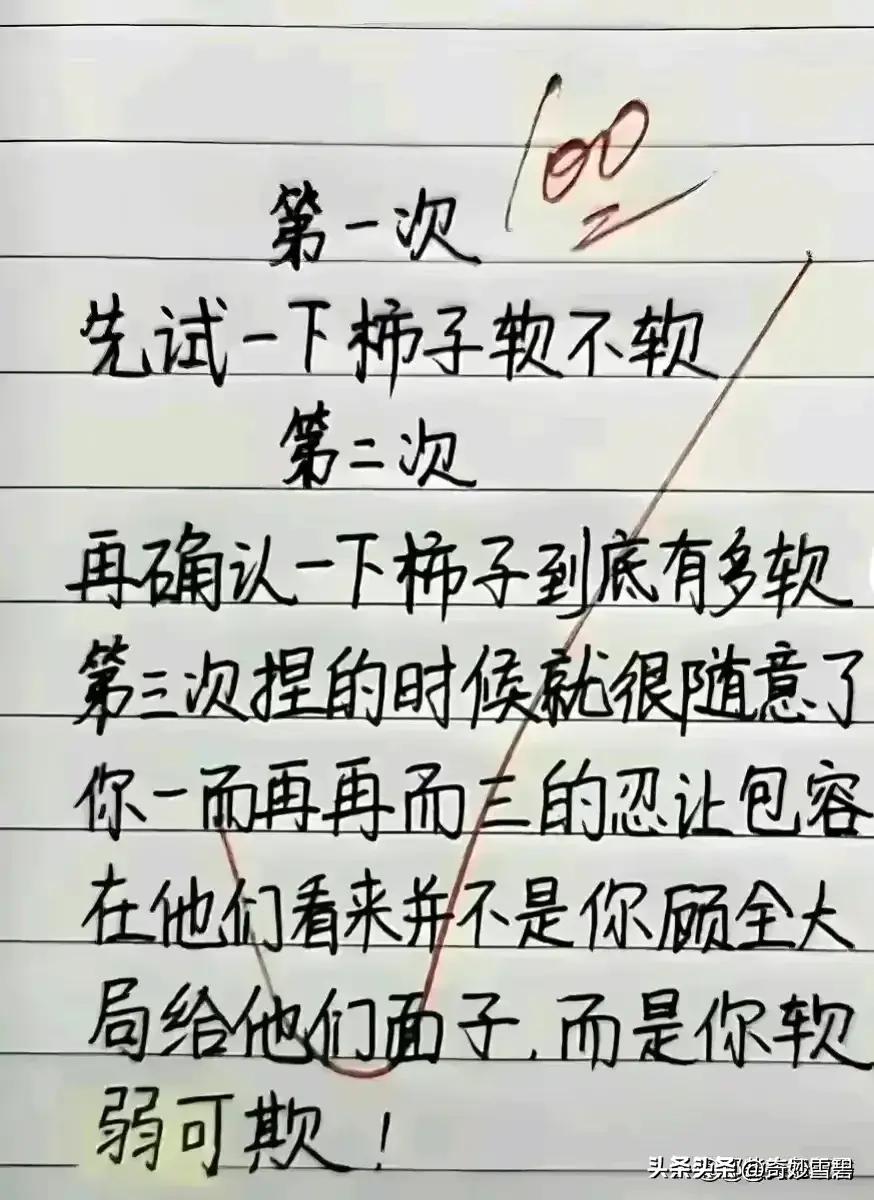 100
第一次
先试一下柿子软不软
第二次
再确认一下柿子到底有多软
第三次捏的时候就很随意了
你一而再再而三的忍让包容
在他们看来并不是你顾全大
局给他们面子,而是你软
弱可欺!
头条 @奇妙雪碧